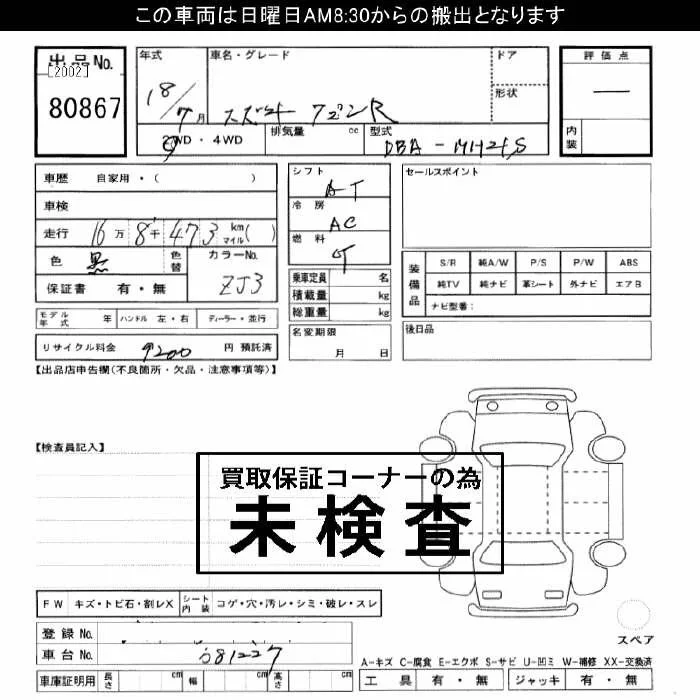 この車両は日曜日AM8:30からの搬出となります
出品No.
[2002]
80867
年式
18/7月
車名・グレード
スズキ ワゴンR
ドア
形状
評価点
―
内装
2WD・4WD
排気量 cc
型式
DBA-MH21S
車歴 自家用・( )
車検
走行 16万8千473 km マイル( )
色 黒 色替 カラーNo.
ZJ3
保証書 有・無
モデル年式 年 ハンドル 左・右 ディーラー・並行
リサイクル料金 9200 円 預託済
シフト
AT
冷房
AC
燃料
乗車定員 名
積載量 kg
総重量 kg
名変期限
月 日
セールスポイント
装備品
S/R 純A/W P/S P/W ABS
純TV 純ナビ 革シート 外ナビ エアB
ナビ型番:
後日品
【出品店申告欄(不良箇所・欠品・注意事項等)】
【検査員記入】
買取保証コーナーの為
未検査
FW キズ・トビ石・割レX シート内装 コゲ・穴・汚レ・シミ・破レ・スレ
登録No.
車台No. 681227
車庫証明用 長さ cm 幅 cm 高さ cm
スペア
A-キズ C-腐食 E-エクボ S-サビ U-凹ミ W-補修 XX-交換済
工具 有・無 ジャッキ 有・無